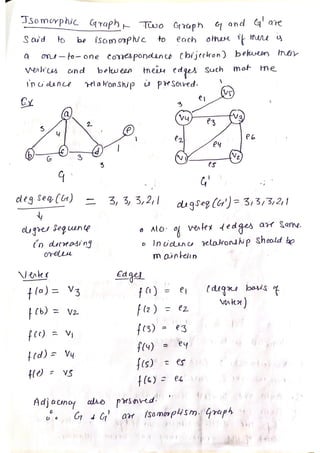 Isomorphic Graph, Two Graph G and G' are
said to be isomorphic to each other if there is
a one-to-one correspondence (bijection) between their
vertices and between their edges such that the
incidence relationship is preserved.
Ex
a
5
4
2
e
1
b
c
d
1
6
3
3
G
v5
e1
3
v4
v3
e3
e2
e4
e6
v1
v2
e5
G'
deg seq. (G) = 3, 3, 3, 2, 1
deg seq (G') = 3, 3, 3, 2, 1
degree sequence
in decreasing
order
o No. of vertex & edges are same
o Incidence relationship should be
maintain
Vertex
Edges
f(a) = v3
f(1) = e1 (degree basis of
vertex)
f(b) = v2
f(2) = e2
f(c) = v1
f(3) = e3
f(d) = v4
f(4) = e4
f(e) = v5
f(5) = e5
f(6) = e6
Adjacency also preserved.
∴ G & G' are Isomorphism Graph